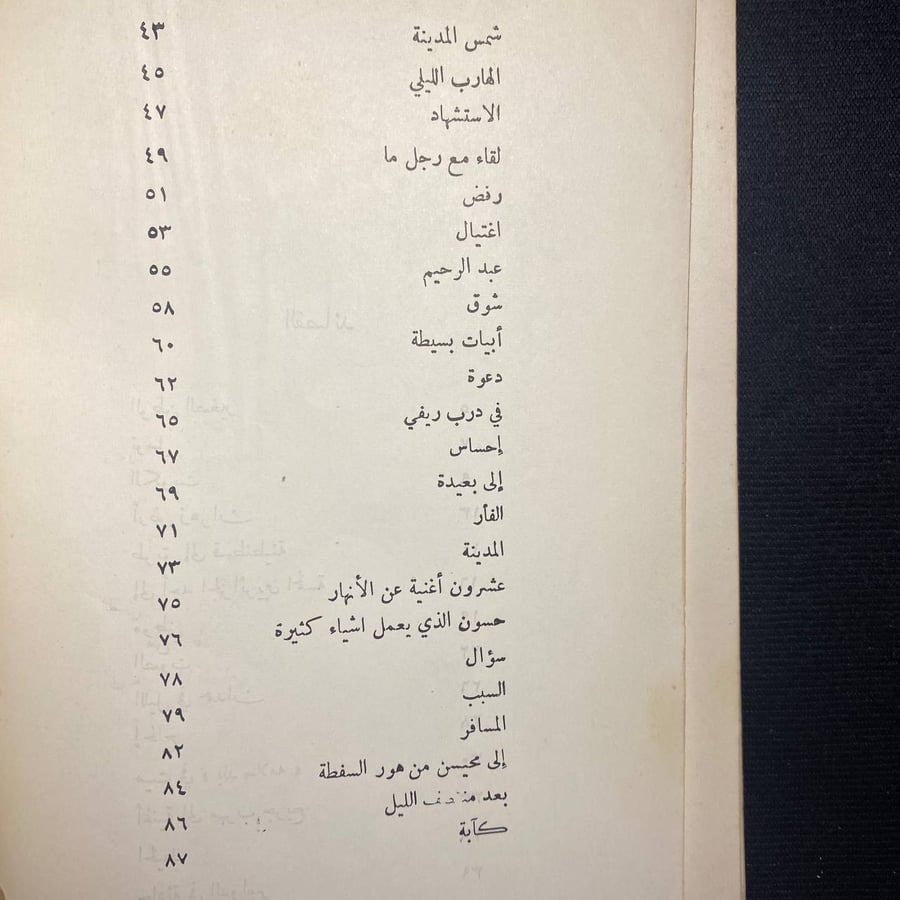 شمس المدينة ٤٣
الهارب الليلي ٤٥
الاستشهاد ٤٧
لقاء مع رجل ما ٤٩
رفض ٥١
اغتيال ٥٣
عبد الرحيم ٥٥
شوق ٥٨
أبيات بسيطة ٦٠
دعوة ٦٢
في درب ريفي ٦٥
إحساس ٦٧
إلى بعيدة ٦٩
الفأر ٧١
المدينة ٧٣
عشرون أغنية عن الأنهار ٧٥
حسون الذي يعمل اشياء كثيرة ٧٦
سؤال ٧٨
السبب ٧٩
المسافر ٨٢
إلى محيسن من هور السفطة ٨٤
بعد منتصف الليل ٨٦
كآبة ٨٧